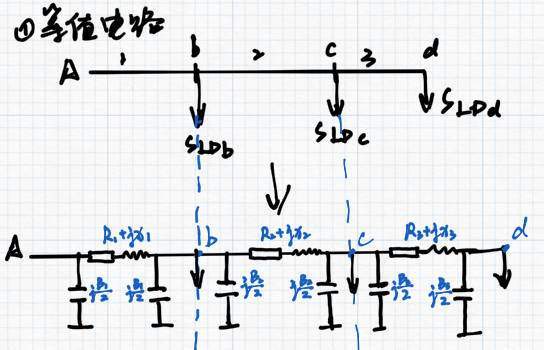 ①等值电路
A 1 b 2 c 3 d
SLDb SLDc SLDd
A R₁+jx₁ b R₂+jx₂ c R₃+jx₃ d
jB₁/2 jB₁/2 jB₂/2 jB₂/2 jB₃/2 jB₃/2